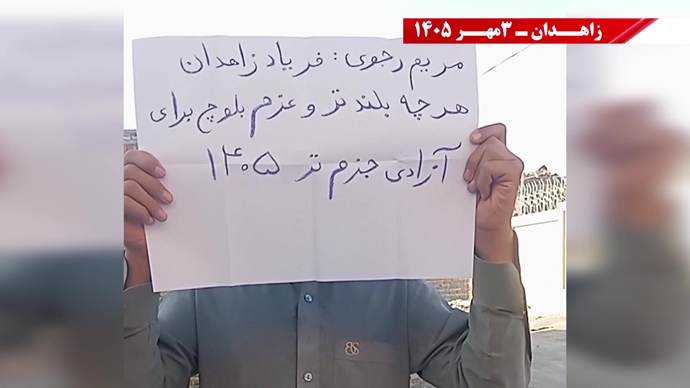 زاهدان – ۳مهر ۱۴۰۵
مریم رجوی: فریاد زاهدان
هرچه بلندتر و عزم بلوچ برای
آزادی جزم تر ۱۴۰۵